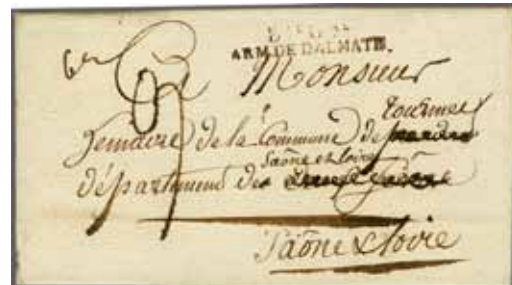 ARM. DE DALMATIE.
Monsieur
Tournus
Lemaire de la Commune de
Saône et Loire
département de
Saône & Loire